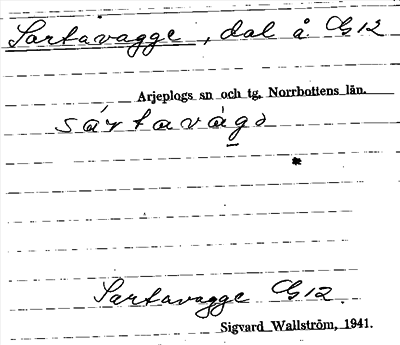 Sartavagge, dal å G12
Arjeplogs sn och tg. Norrbottens län.
sártavágə
Sartavagge G12.
Sigvard Wallström, 1941.